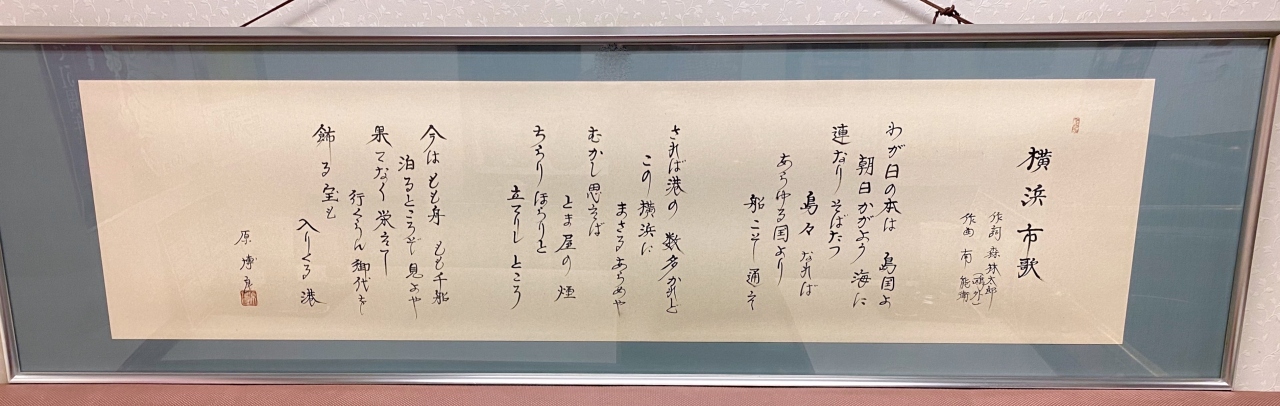 横浜市歌
作詞 森林太郎
(鴎外)
作曲 南 能衛
わが日の本は 島国よ
朝日かがよう 海に
連なりそばたつ
島々なれば
あらゆる国より
船こそ通え
されば港の 数多かれど
この横浜に
まさるあらめや
むかし思えば
とま屋の煙
ちらりほらりと
立てりしところ
今はもも舟 もも千船
泊るところぞ見よや
果てなく栄えて
行くらん御代を
飾る宝も
入りくる港
原